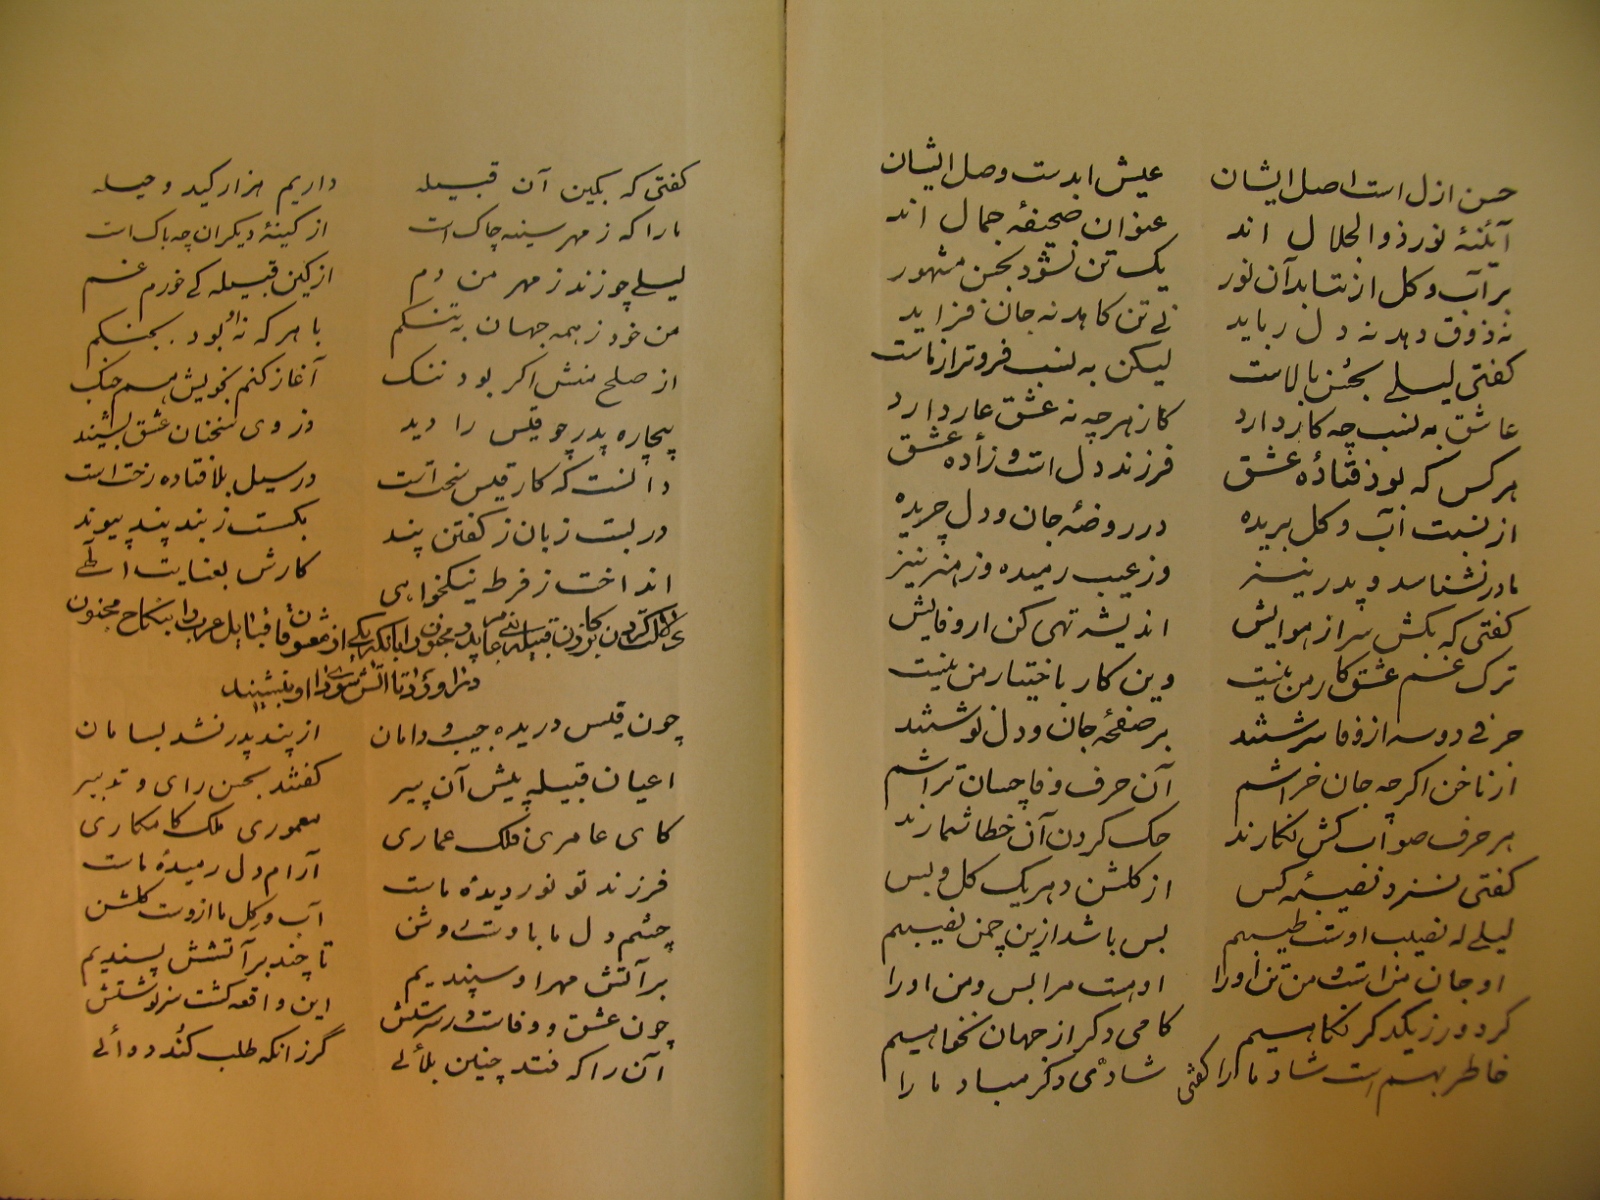 حسن ازل است اصل ایشان عیش ابدست وصل ایشان
آئنهٔ نور ذوالجلال اند عنوان صحیفهٔ جمال اند
بر آب و کل ار نتابد آن نور یک تن نشود بحسن مشهور
نه ذوق دهد نه دل رباید نی تن کاهد نه جان فزاید
کفتی لیلے بحسن بالاست لیکن به نسب فروتر از ماست
عاشق به نسب چه کار دارد کز هرچه نه عشق عار دارد
هرکس که بود فتادهٔ عشق فرزند دل است و زادهٔ عشق
از نسبت آب و کل بریده در روضهٔ جان و دل چریده
مادر نشناسد و پدر نیز وز عیب رمیده وز هنر نیز
کفتی که بکش سر از هوایش اندیشه تهی کن از وفایش
ترک غم عشق کار من نیست وین کار باختیار من نیست
حرفی دو سه از وفا سرشتند بر صفحهٔ جان و دل نوشتند
از ناخن اکرچه جان خراشم آن حرف وفا چسان تراشم
هر حرف صواب کش نکارند حک کردن آن خطا شمارند
کفتی نسزد نصیبهٔ کس از کلشن دهر یک کل و بس
لیلے که نصیب اوست طیبم بس باشد ازین چمن نصیبم
او جان منست و من تن او را او هست مرا بس و من او را
کر دور ز یکدکر نکاهیم کامی دکر از جهان نخواهیم
خاطر بهم است شاد ما را شادئ دکر مباد ما را
کفتی
کفتی که بکین آن قبیله داریم هزار کید و حیله
ما را که ز مهر سینه چاک است از کینهٔ دیکران چه باک است
لیلے چو زند ز مهر من دم از کین قبیله کے خورم غم
من خود ز همه جهان به تنکم با هرکه نه او بود بجنکم
از صلح منش اکر بود ننک آغاز کنم بخویش هم جنک
بیچاره پدر چو قیس را دید وز وی سخنان عشق بشنید
دانست که کار قیس سخت است در سیل بلا فتاده رخت است
در بست زبان ز کفتن پند بکست ز بند پند پیوند
انداخت ز فرط نیکخواهی کارش بعنایت الٰهے
چون قیس دریده جیب و دامان از پند پدر نشد بسامان
اعیان قبیله پیش آن پیر کفتند بحسن رای و تدبیر
کای عامری فلک عماری معموری ملک کامکاری
فرزند تو نور دیدهٔ ماست آرام دل رمیدهٔ ماست
چشم دل ما باوست روشن آب و کل ما ازوست کلشن
بر آتش مهر او سپندیم تا چند بر آتشش پسندیم
چون عشق و وفاست در سرشتش این واقعه کشت سرنوشتش
آن را که فتد چنین بلائے کر زانکه طلب کند دوائے